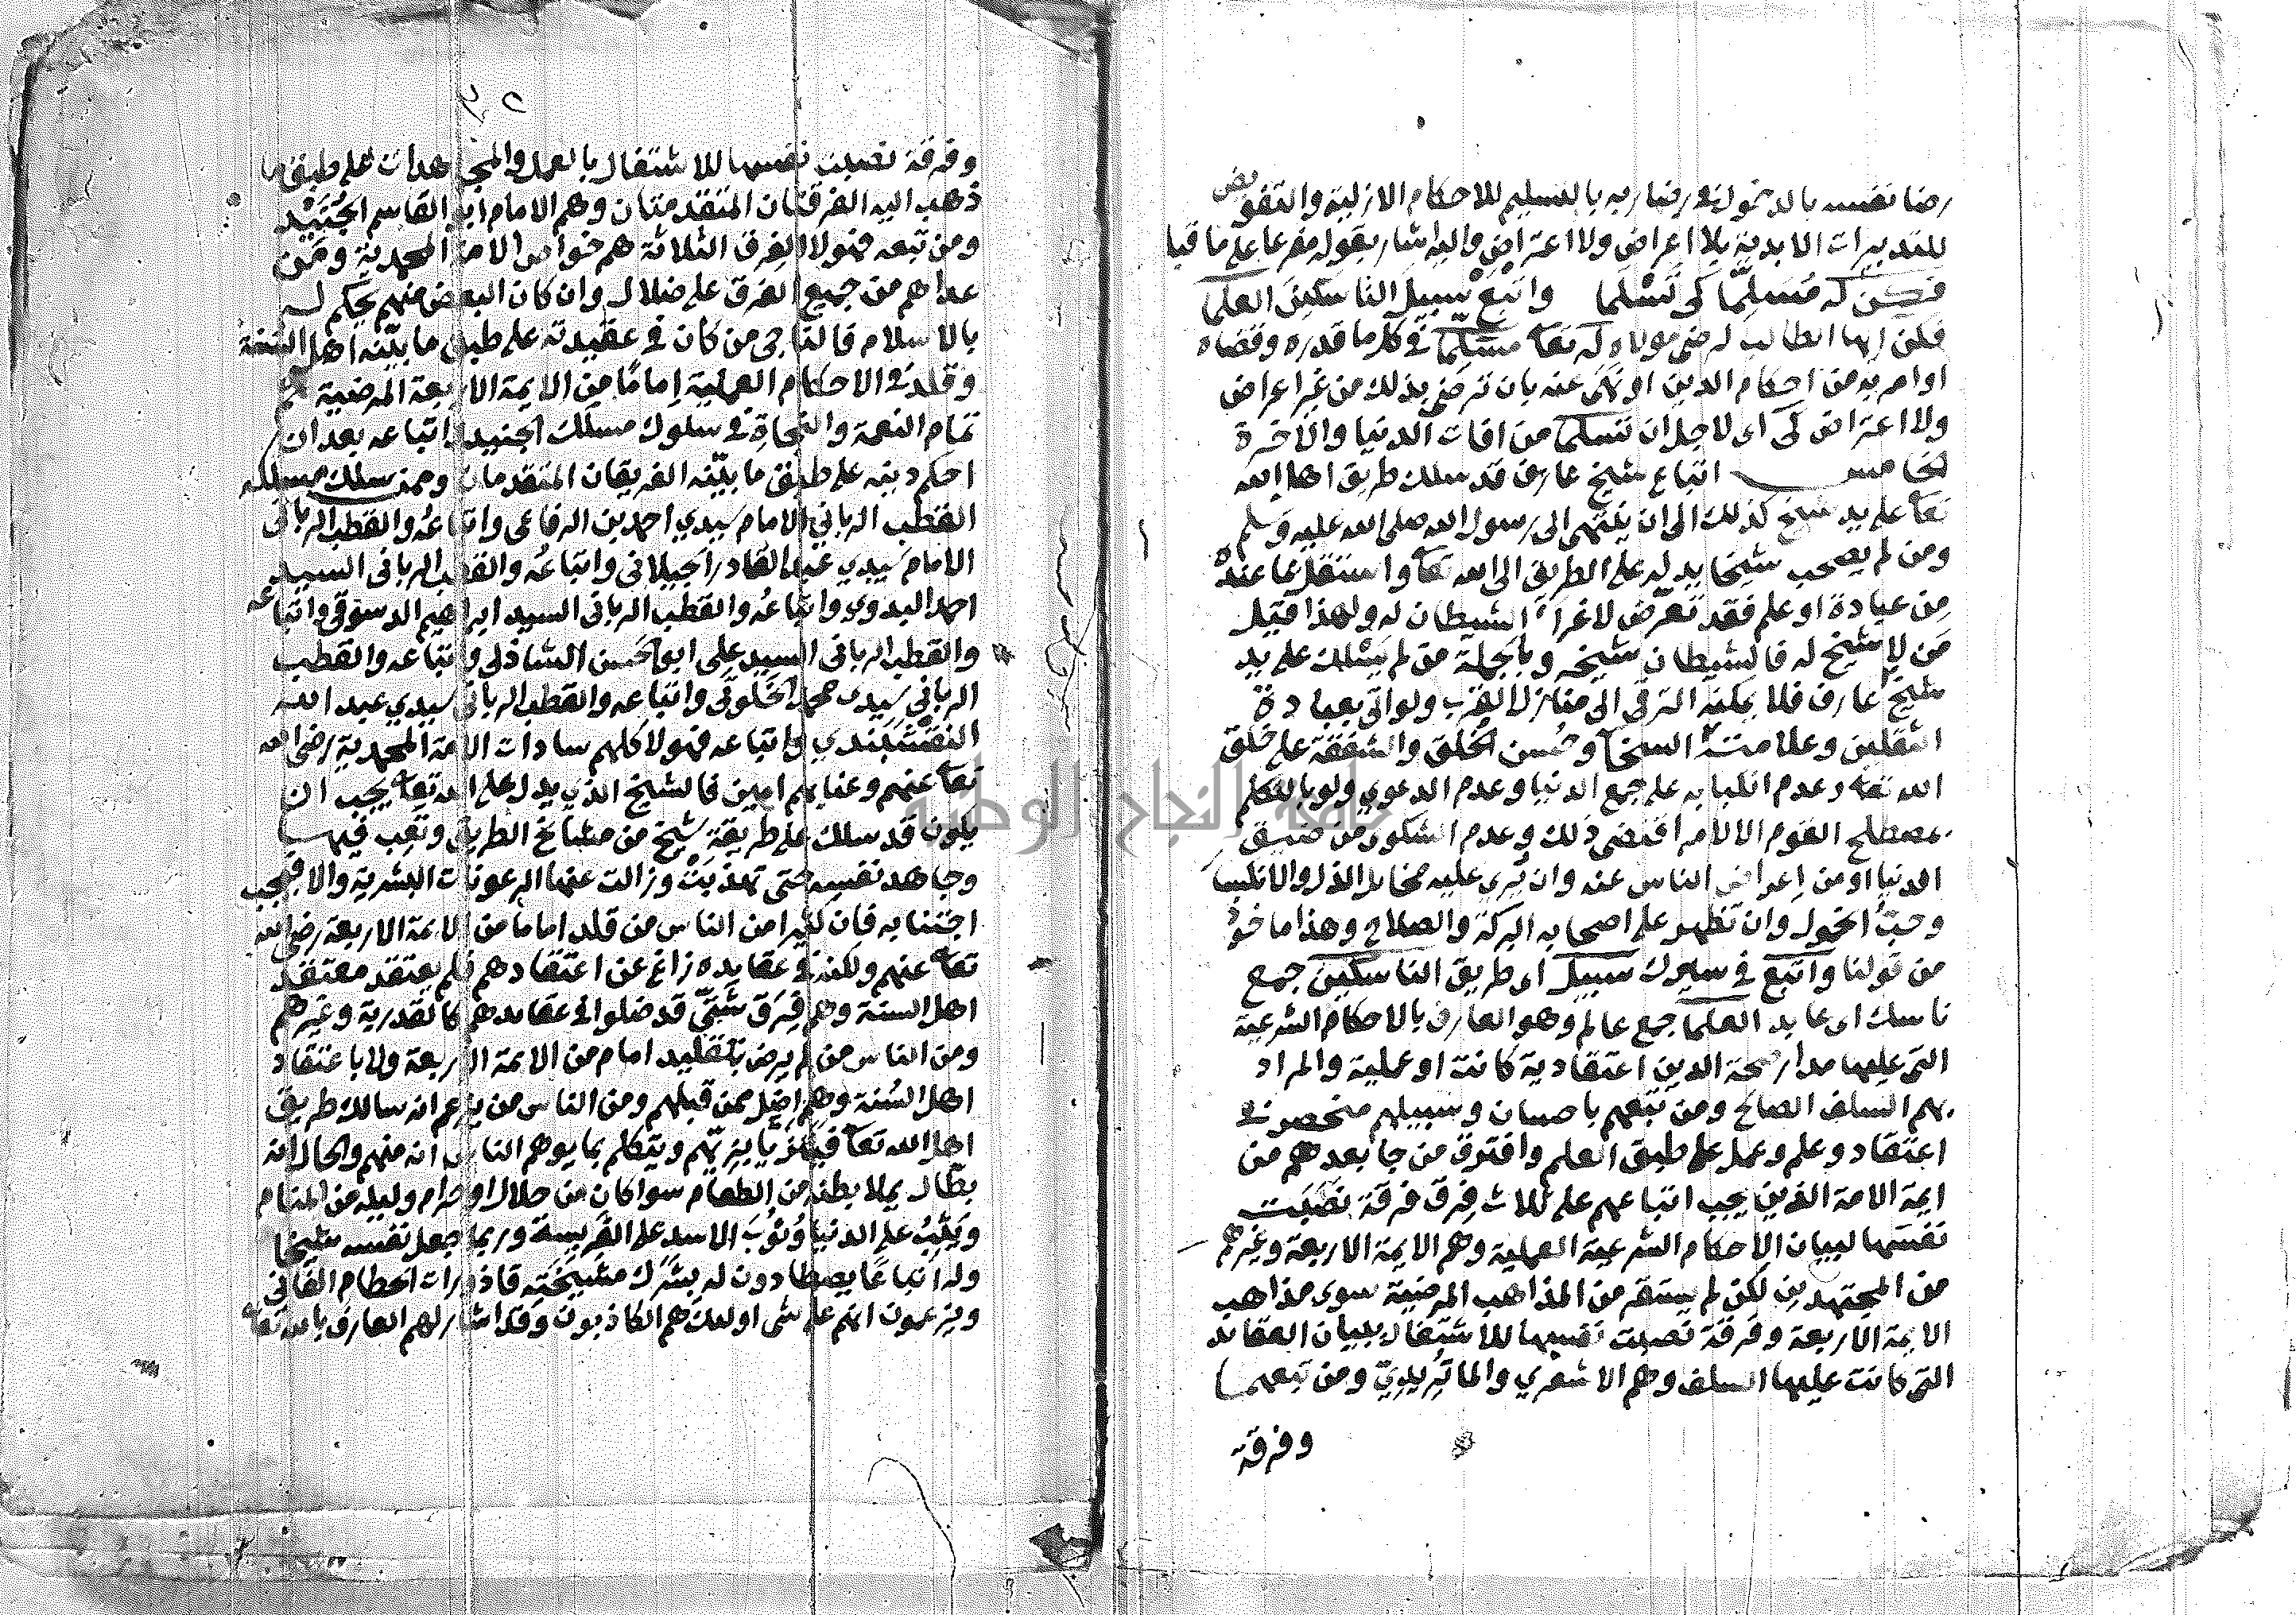 رضا نفسه بالدخول في رضا ربه بالتسليم للاحكام الازلية والتفويض
للتدبيرات الابدية بلا اعراض ولا اعتراض واليه اشار بقوله مفرعا على ما قبله
فكن له مسلما كي تسلما واتبع سبيل الناسكين العلما
فكن ايها الطالب لرضى مولاه له تعا مسلما في كل ما قدره وقضاه
او امر به من احكام الدين او نهى عنه بان ترضى بذلك من غير اعراض
ولا اعتراض كي اى لاجل ان تسلما من افات الدنيا والاخرة
الخامس اتباع شيخ عارف قد سلك طريق اهل الله
تعا على يد شيخ كذلك الى ان ينتهى الى رسول الله صلى الله عليه وسلم
ومن لم يصحب شيخا يدله على الطريق الى الله تعا واستقل بما عنده
من عبادة او علم فقد تعرض لاغرآء الشيطان له ولهذا قيل
من لا شيخ له فالشيطان شيخه وبالجملة من لم يسلك على يد
شيخ عارف فلا يمكنه الترقى الى منازل القرب ولو اتى بعبادة
الثقلين وعلامته السخآ وحسن الخلق والشفقة على خلق
الله تعا وعدم انكبابه على جمع الدنيا وعدم الدعوي ولو بالتكلم
بمصطلح القوم الا لامر اقتضى ذلك وعدم الشكوى من ضيق
الدنيا او من اعراض الناس عنه وان يرى عليه مخايل الذل والانكسا
وحب الخمول وان تظهر على اصحابه البركة والصلاح وهذا ماخوذ
من قولنا واتبع في سلوك سبيل اى طريق الناسكين جمع
ناسك اى عابد العلما جمع عالم وهو العارف بالاحكام الشرعية
التى عليها مدار صحة الدين اعتقادية كانت او عملية والمراد
بهم السلف الصالح ومن تبعهم باحسان وسبيلهم منحصر في
اعتقاد وعلم وعمل على طبق العلم وافترق من جا بعدهم من
ايمة الامة الذين يجب اتباعهم على ثلاث فرق فرقة نصبت
نفسها لبيان الاحكام الشرعية العملية وهم الايمة الاربعة وغيرهم
من المجتهدين لكن لم يستقر من المذاهب المرضية سوى مذاهب
الايمة الاربعة وفرقة نصبت نفسها للاشتغال ببيان العقايد
التى كانت عليها السلف وهم الاشعري والماتريدي ومن تبعهما
وفرقة
وفرقة نصبت نفسها للاشتغال بالعمل والمجاهدات على طبق ما
ذهب اليه الفرقتان المتقدمتان وهم الامام ابو القاسم الجنيد
ومن تبعه فهولا الفرق الثلاثة هم خواص الامة المحمدية ومن
عداهم من جميع الفرق على ضلال وان كان البعض منهم يحكم له
بالاسلام فالناجى من كان في عقيدته على طبق ما بينه اهل السنة
وقلد في الاحكام العملية اماما من الايمة الاربعة المرضية ثم
تمام النعمة والنجاة في سلوك مسلك الجنيد واتباعه بعد ان
احكم دينه على طبق ما بينه الفريقان المتقدمان وممن سلك مسلكه
القطب الربانى الامام سيدي احمد بن الرفاعى واتباعه والقطب الربانى
الامام سيدي عبد القادر الجيلانى واتباعه والقطب الربانى السيد
احمد البدوي واتباعه والقطب الربانى السيد ابراهيم الدسوقى واتباعه
والقطب الربانى السيد على ابو الحسن الشاذلى واتباعه والقطب
الربانى سيدى محمد الخلوتى واتباعه والقطب الربانى سيدي عبد الله
النقشبندي واتباعه فهولا كلهم سادات الامة المحمدية رضى الله
تعا عنهم وعنا بهم امين فالشيخ الذي يدل على الله تعا يجب ان
يكون قد سلك على طريقة شيخ من مشايخ الطريق وتعب فيها
وجاهد نفسه حتى تهذبت وزالت عنها الرعونات البشرية والا فيجب
اجتنابه فان كثيرا من الناس من قلد اماما من الايمة الاربعة رضى الله
تعا عنهم ولكنه في عقايده زاغ عن اعتقادهم فلم يعتقد معتقد
اهل السنة وهم فرق شتى قد ضلوا في عقايدهم كالقدرية وغيرهم
ومن الناس من لم يرض بتقليد امام من الايمة الاربعة ولا باعتقاد
اهل السنة وهم اضل ممن قبلهم ومن الناس من يزعم انه سالك طريق
اهل الله تعا فيتزيا بزيهم ويتكلم بما يوهم الناس انه منهم والحال انه
بطال يملا بطنه من الطعام سوا كان من حلال او حرام وليله من المنام
ويثب على الدنيا وثوب الاسد على الفريسة وربما جعل نفسه شيخا
وله اتباعا يصطادون له بشرك مشيخته قاذورات الحطام الفانى
ويزعمون انهم على شى اوليك هم الكاذبون وقد اشار لهم العارف بالله تعا